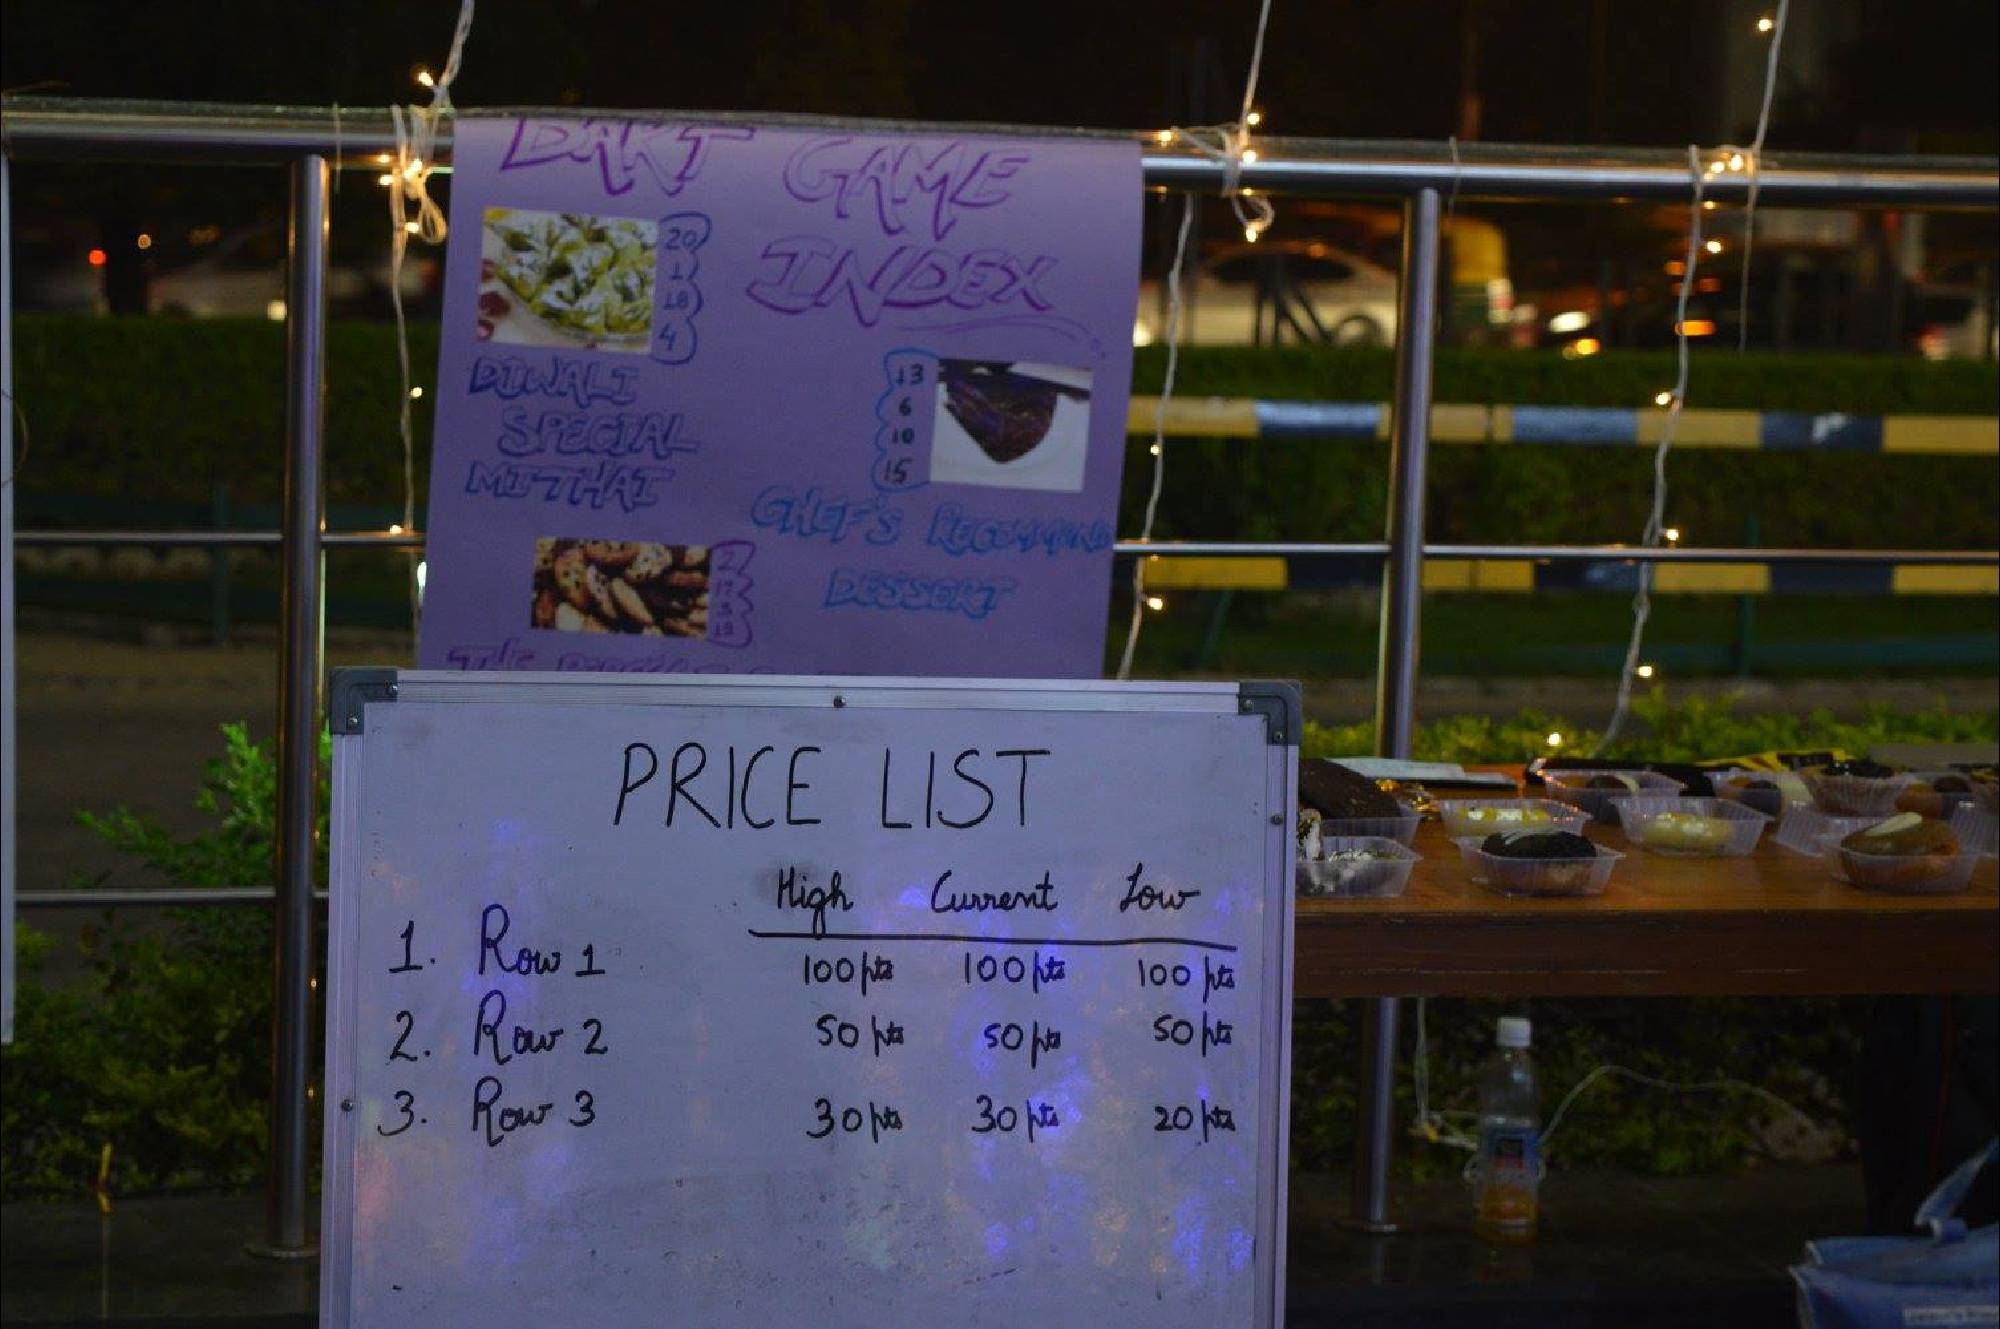 DART GAME
INDEX
20
1
18
4
DIWALI
SPECIAL
MITHAI
13
6
10
15
CHEF'S RECOMMEND
DESSERT
2
17
3
19
THE
PRICE LIST
High Current Low
1. Row 1 100 pts 100 pts 100 pts
2. Row 2 50 pts 50 pts 50 pts
3. Row 3 30 pts 30 pts 20 pts